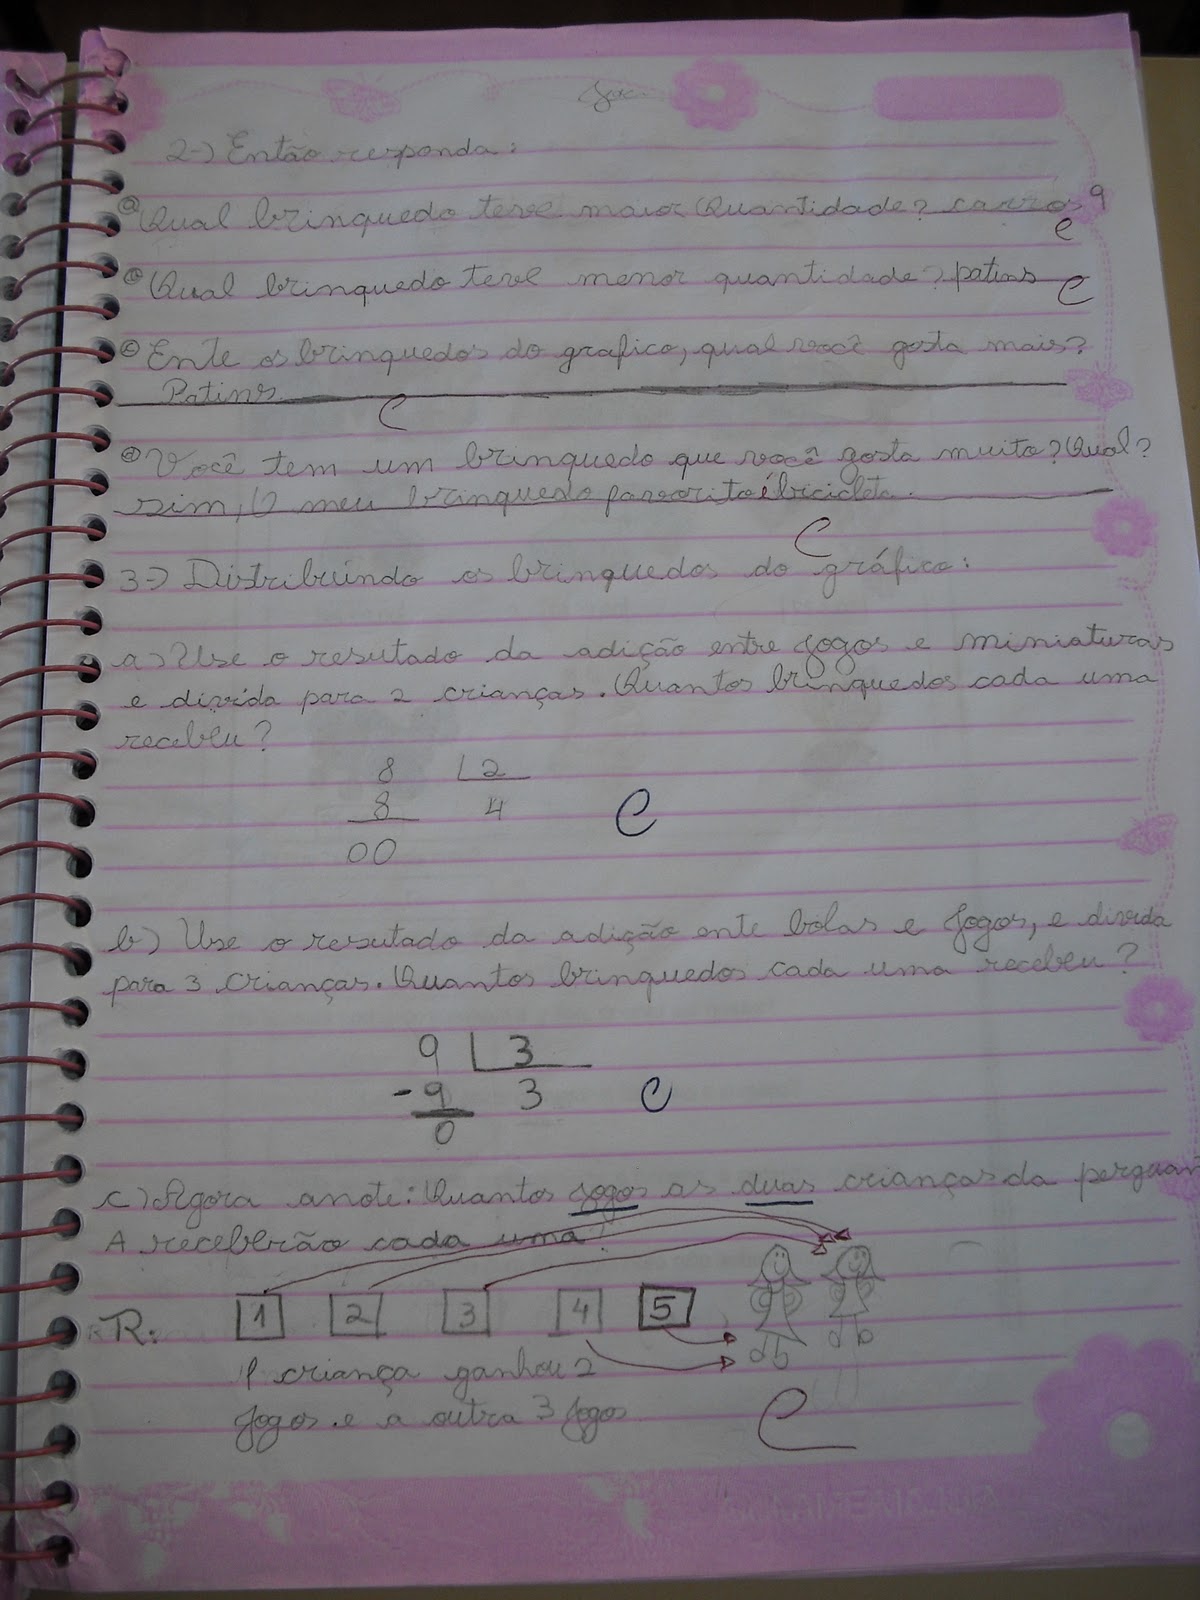 2-) Então responda:
a) Qual brinquedo teve maior Quantidade? carros 9
C
b) Qual brinquedo teve menor quantidade? patins
C
c) Ente os brinquedos do grafico, qual você gosta mais?
Patins
C
d) Você tem um brinquedo que você gosta muito? Qual?
sim, O meu brinquedo favorito é bicicleta.
C
3-) Distribuindo os brinquedos do gráfico:
a) Use o resutado da adição entre jogos e miniaturas
e divida para 2 crianças. Quantos brinquedos cada uma
recebeu?
8 2
8 4
C
00
b) Use o resutado da adição ente bolas e jogos, e divida
para 3 crianças. Quantos brinquedos cada uma recebeu?
9 3
-9 3
C
0
c) Agora anote: Quantos jogos as duas crianças da perguan
A receberão cada uma?
R: 1 2 3 4 5
1 criança ganhou 2
jogos. e a outra 3 jogos
C